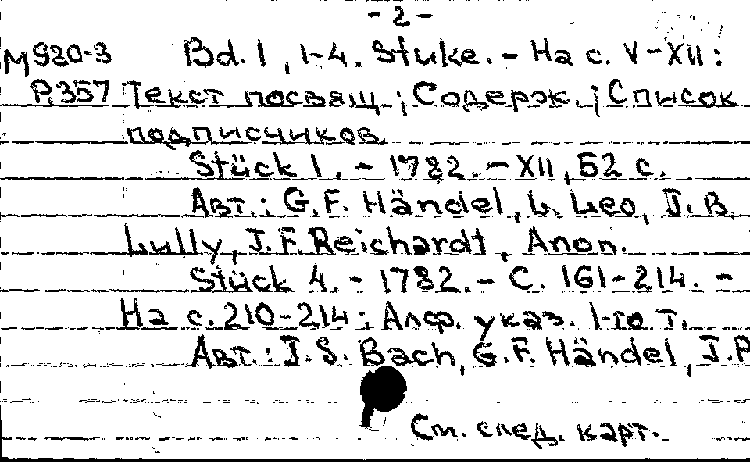 - 2 -
М 920-3 Bd. 1, 1-4. Stuke. - На с. V-XII:
Р357 Текст посвящ.; Содерж.; Список
подписчиков.
Stück 1. - 1782. - XII, 52 с.
Авт.: G.F. Händel, L. Leo, J.B.
Lully, J.F. Reichardt, Anon.
Stück 4. - 1782. - С. 161-214. -
На с. 210-214: Алф. указ. 1-го т.
Авт.: J.S. Bach, G.F. Händel, J.P
См. след. карт.